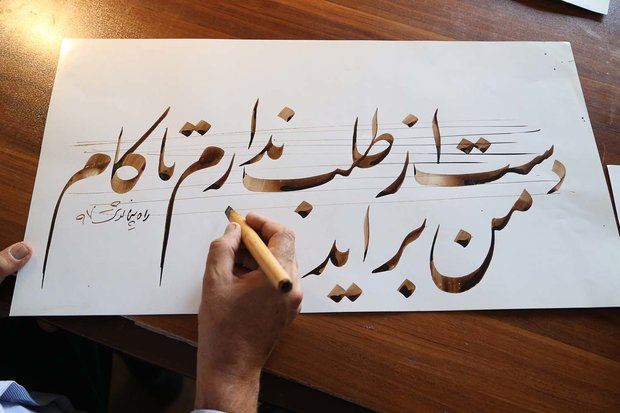 دست از طلب ندارم تا کام
من براید
۹۷